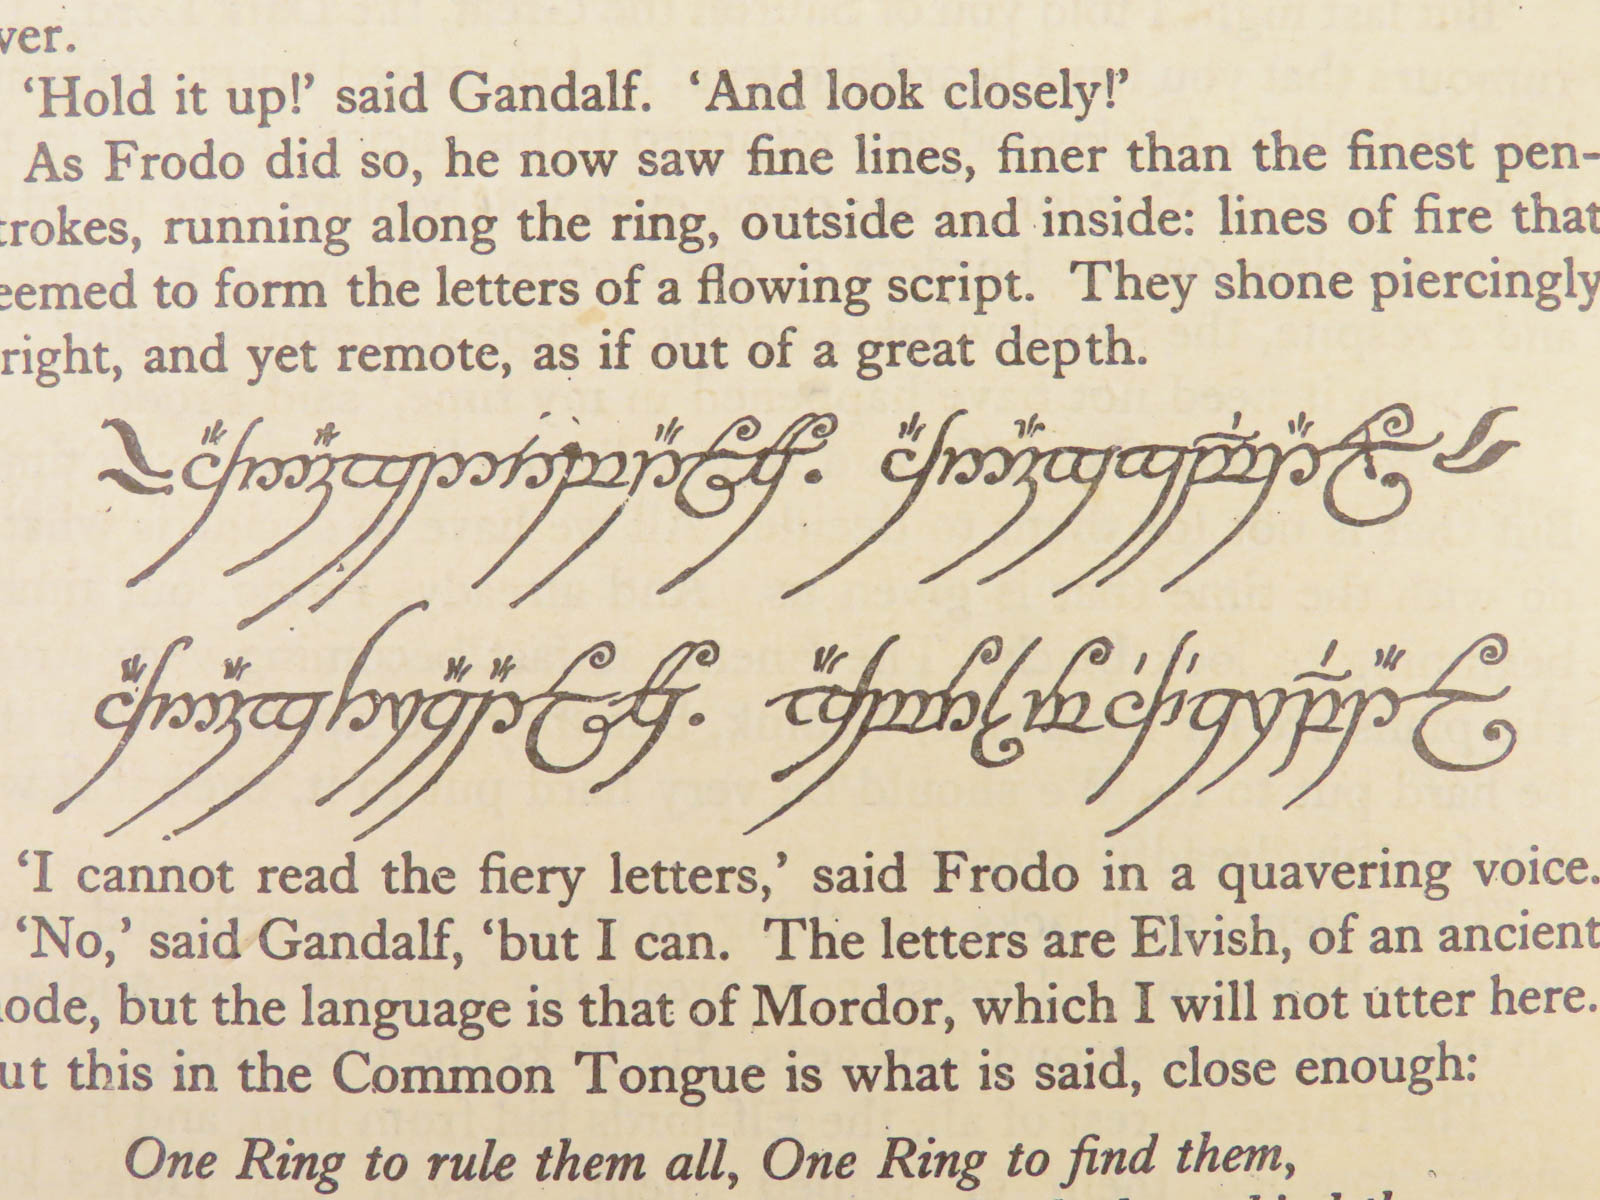 ver.
‘Hold it up!’ said Gandalf. ‘And look closely!’
As Frodo did so, he now saw fine lines, finer than the finest pen-
trokes, running along the ring, outside and inside: lines of fire that
eemed to form the letters of a flowing script. They shone piercingly
right, and yet remote, as if out of a great depth.
‘I cannot read the fiery letters,’ said Frodo in a quavering voice.
‘No,’ said Gandalf, ‘but I can. The letters are Elvish, of an ancient
ode, but the language is that of Mordor, which I will not utter here.
ut this in the Common Tongue is what is said, close enough:
One Ring to rule them all, One Ring to find them,